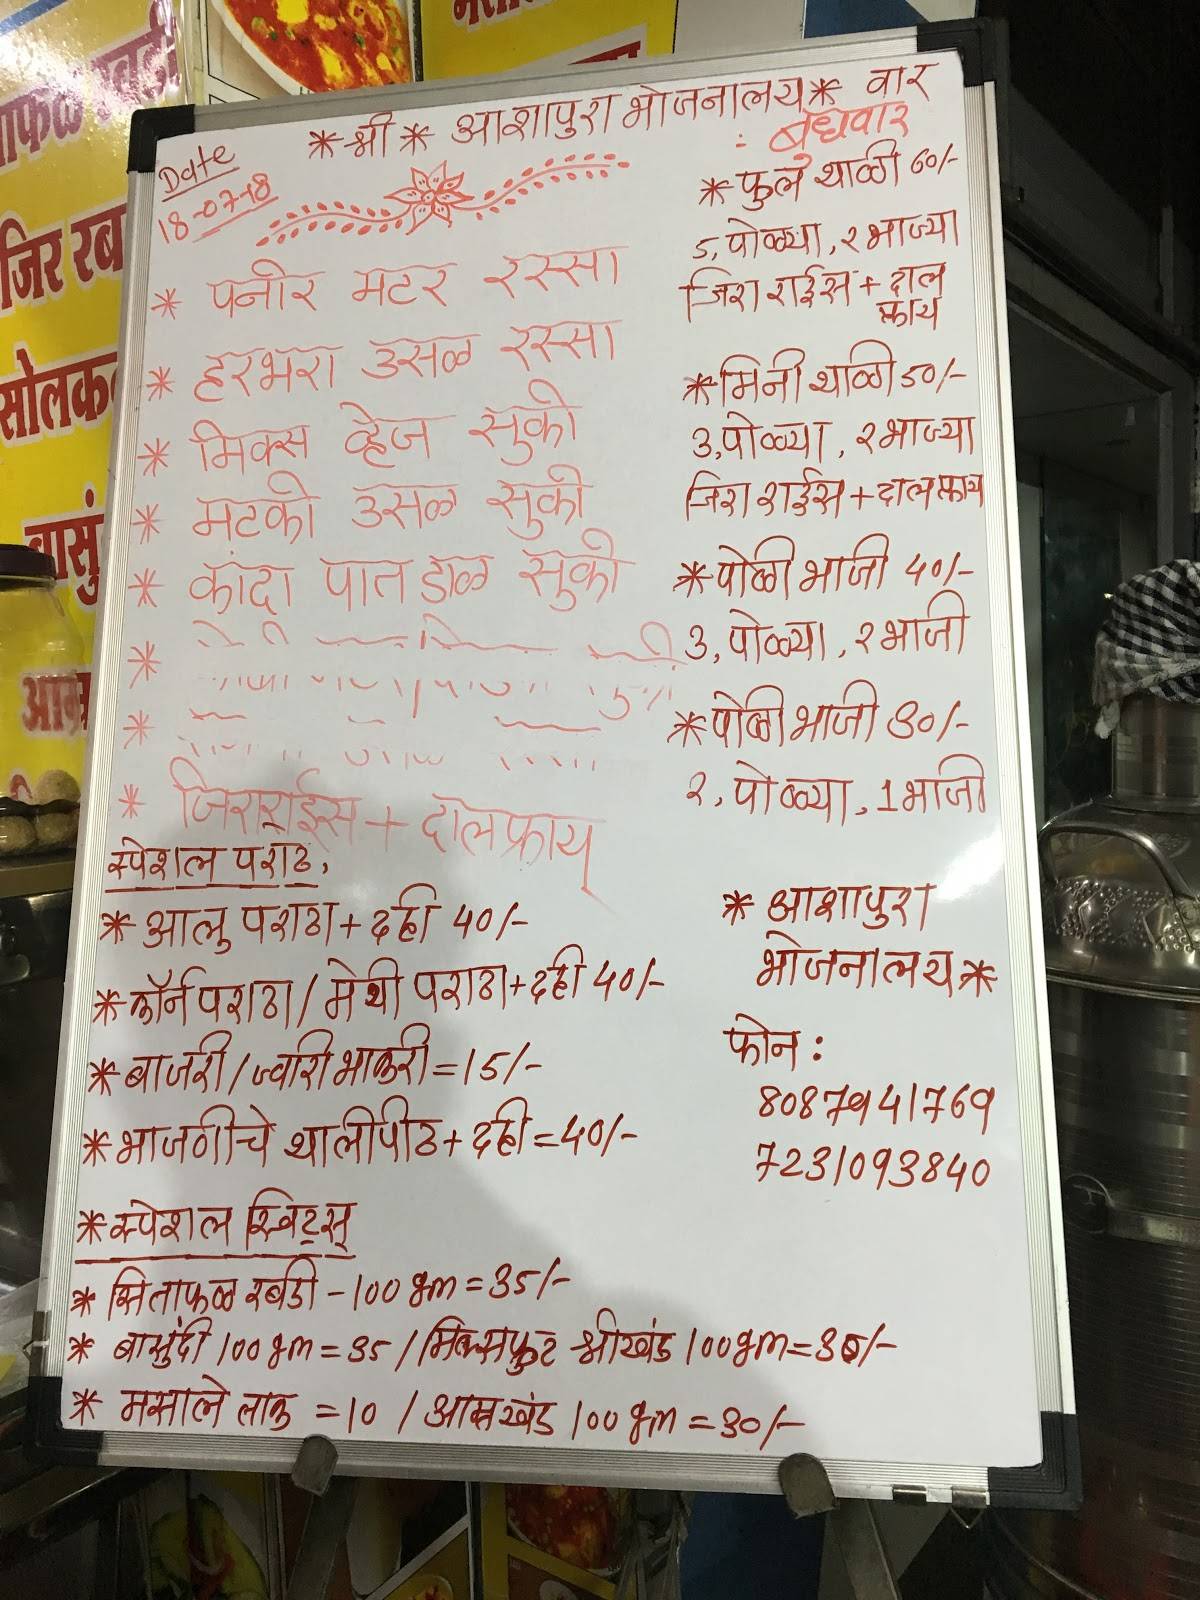 *श्री* आशापुरा भोजनालय* वार
: बुधवार
Date
18-07-18
* पनीर मटर रस्सा
* हरभरा उसळ रस्सा
* मिक्स व्हेज सुकी
* मटकी उसळ सुकी
* कांदा पात डाळ सुकी
*
*
* जिराराईस + दालफ्राय्
स्पेशल पराठा,
* आलु पराठा + दही 40/-
* कॉर्न पराठा / मेथी पराठा + दही 40/-
* बाजरी / ज्वारी भाकरी = 15/-
* भाजणीचे थालीपीठ + दही = 40/-
* स्पेशल स्विट्स्
* सिताफळ रबडी - 100 gm = 35/-
* बासुंदी 100 gm = 35 / मिक्सफ्रुट श्रीखंड 100 gm = 30/-
* मसाले ताक = 10 / आम्रखंड 100 gm = 30/-
* फुल थाळी 60/-
5, पोळ्या, २ भाज्या
जिरा राईस + दाल
फ्राय
* मिनी थाळी 50/-
3, पोळ्या, २ भाज्या
जिरा राईस + दाल फ्राय
* पोळी भाजी 40/-
3, पोळ्या, २ भाजी
* पोळी भाजी 30/-
२, पोळ्या, 1 भाजी
* आशापुरा
भोजनालय *
फोन :
8087941769
7231093840
जिर रब
सोलक
बासुं